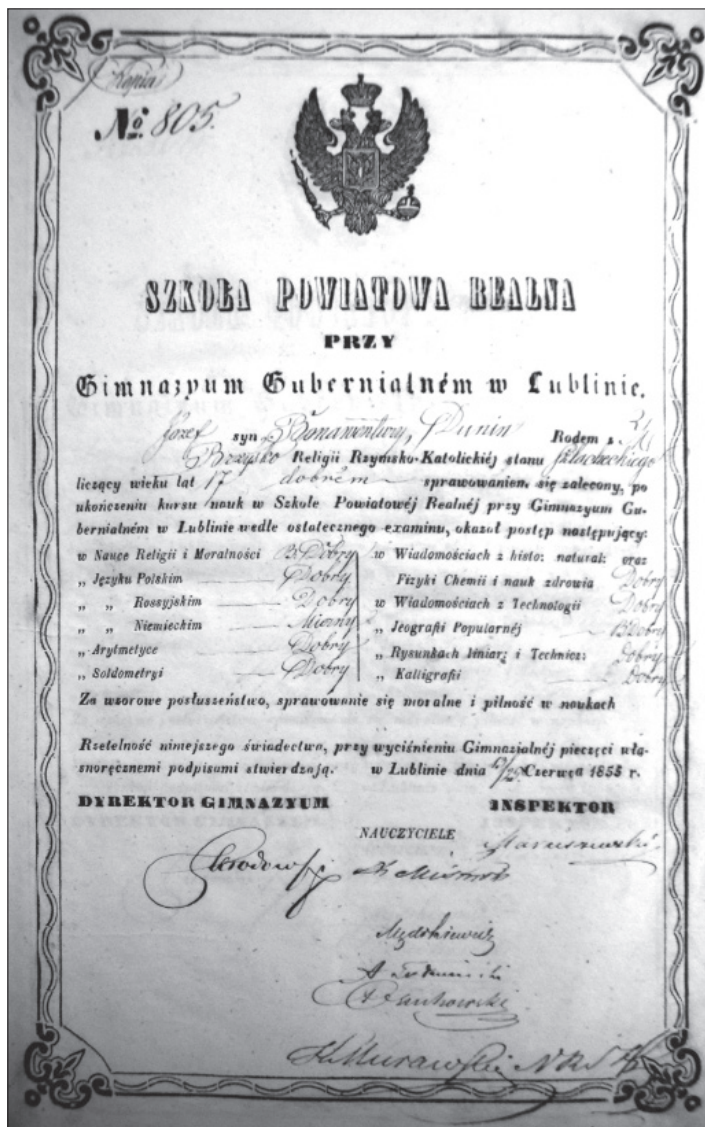 Kopia
No 805.
SZKOŁA POWIATOWA REALNA
PRZY
Gimnazyum Gubernialném w Lublinie.
Józef syn Bonawentury Dunin Rodem z
Religii Rzymsko-Katolickiéj stanu szlacheckiego
liczący wieku lat 17 dobrém sprawowaniem się zalecony, po
ukończeniu kursu nauk w Szkole Powiatowéj Realnéj przy Gimnazyum Gu-
bernialném w Lublinie wedle ostatecznego examinu, okazał postęp następujący:
w Nauce Religii i Moralności B. Dobry
„ Języku Polskim Dobry
„ „ Rossyjskim Dobry
„ „ Niemieckim Mierny
„ Arytmetyce Dobry
„ Solidometryi Dobry
w Wiadomościach z histo: natural: oraz
Fizyki Chemii i nauk zdrowia Dobry
w Wiadomościach z Technologii Dobry
„ Jeografii Popularnéj B. Dobry
„ Rysunkach liniar: i Technicz: dobry
„ Kalligrafii Dobry
Za wzorowe posłuszeństwo, sprawowanie się moralne i pilność w naukach
Rzetelność niniejszego świadectwa, przy wyciśnieniu Gimnazialnéj pieczęci wła-
snoręcznemi podpisami stwierdzają. w Lublinie dnia Czerwca 1855 r.
DYREKTOR GIMNAZYUM
INSPEKTOR
NAUCZYCIELE